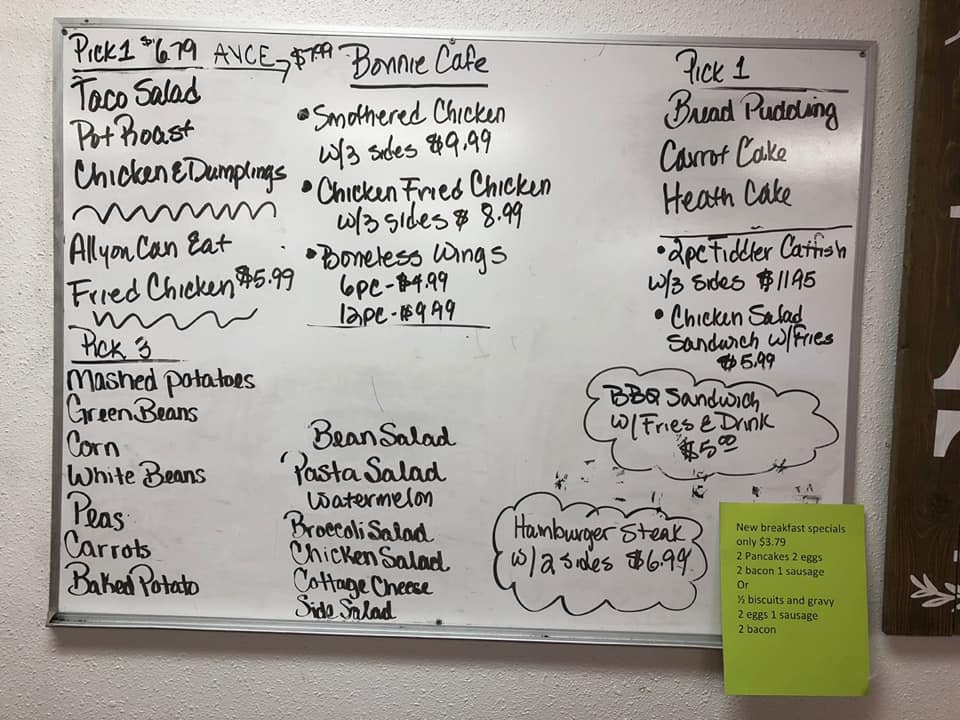 Pick 1 $6.79 AYCE → $7.99
Taco Salad
Pot Roast
Chicken & Dumplings
All you Can Eat
Fried Chicken $5.99
Pick 3
Mashed potatoes
Green Beans
Corn
White Beans
Peas
Carrots
Baked Potato
Bonnie Cafe
• Smothered Chicken
w/3 sides $9.99
• Chicken Fried Chicken
w/3 sides $8.99
• Boneless Wings
6pc - $4.99
12pc - $9.99
Bean Salad
Pasta Salad
Watermelon
Broccoli Salad
Chicken Salad
Cottage Cheese
Side Salad
Pick 1
Bread Pudding
Carrot Cake
Heath Cake
• 2pc Fiddler Catfish
w/3 sides $11.95
• Chicken Salad
Sandwich w/Fries
$5.99
BBQ Sandwich
w/Fries & Drink
$5.00
Hamburger Steak
w/2 sides $6.99
New breakfast specials
only $3.79
2 Pancakes 2 eggs
2 bacon 1 sausage
Or
½ biscuits and gravy
2 eggs 1 sausage
2 bacon